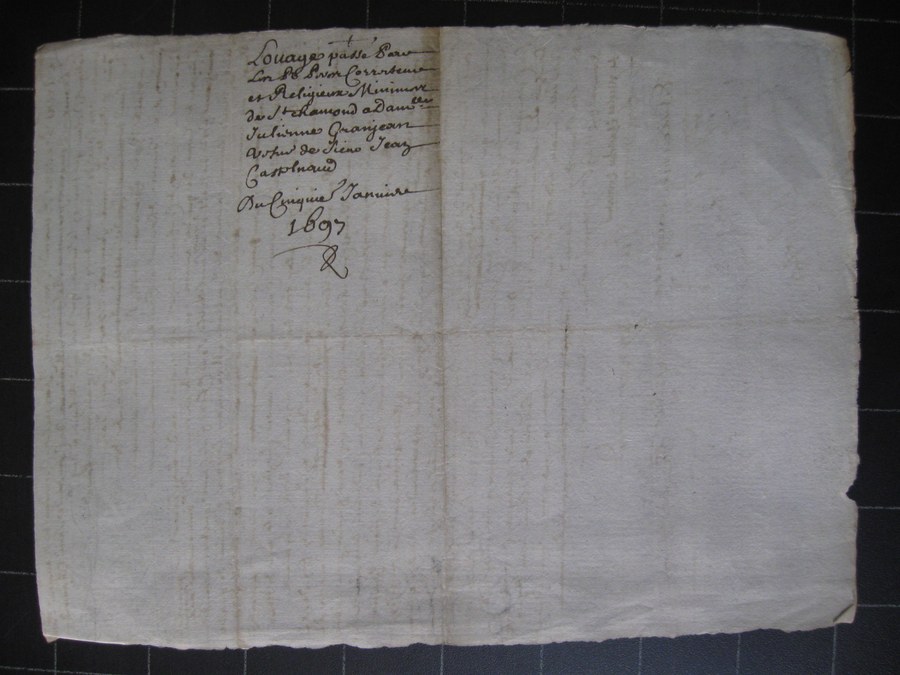 Louage passé Par
Les RR Peres Correcteur
et Religieux Minimes
de St chamond a Damlle
Julienne Granjean
vefve de Sieur Jean
Castelnaud
Du Cinquie Janvier
1697